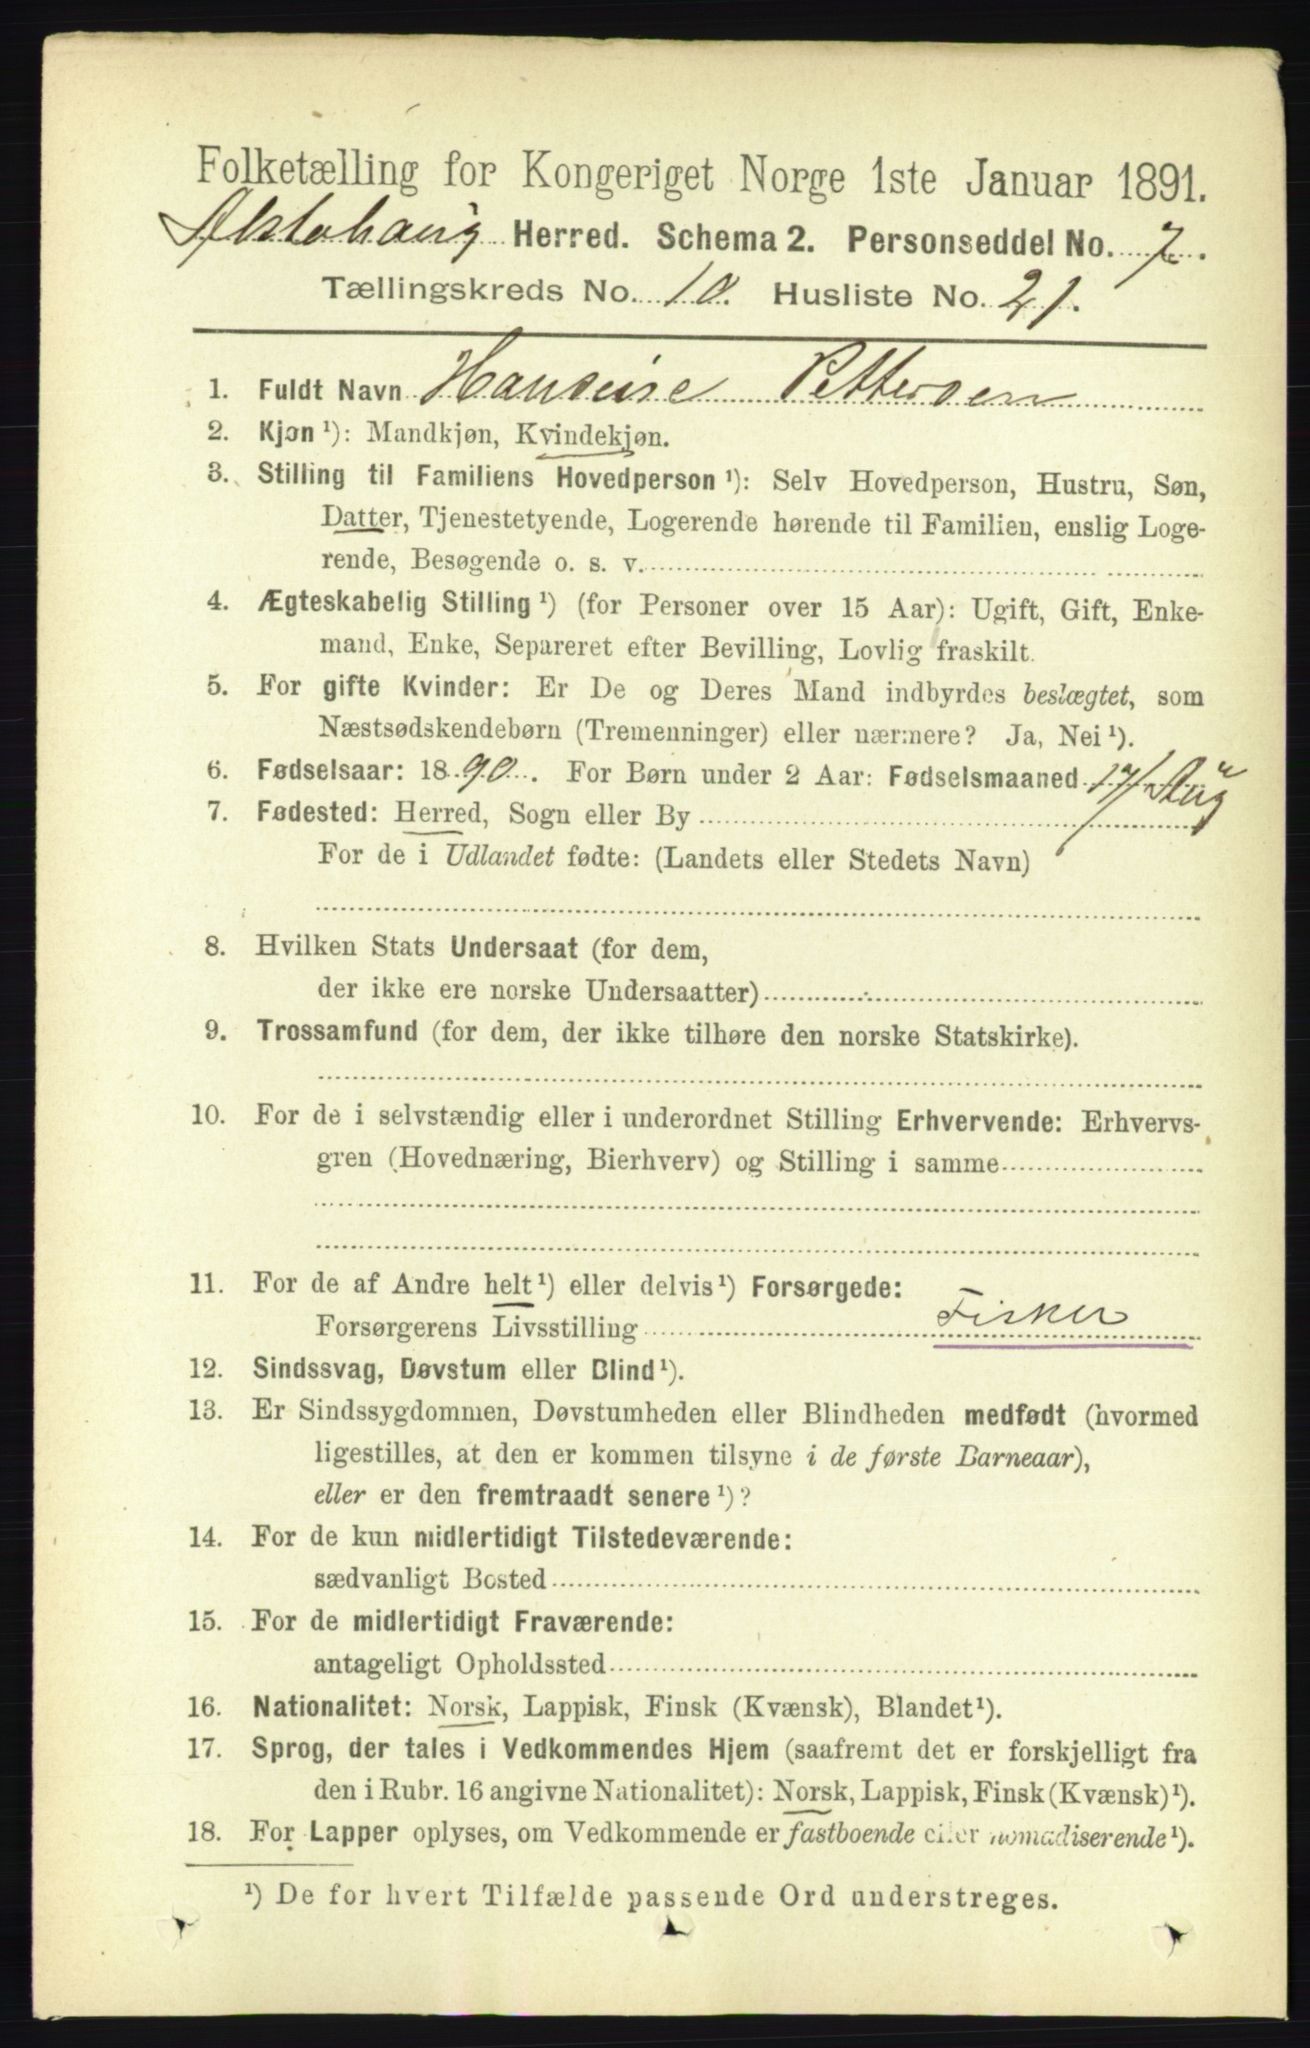 Folketælling for Kongeriget Norge 1ste Januar 1891.
Alstahaug Herred. Schema 2. Personseddel No. 7.
Tællingskreds No. 10. Husliste No. 21.
1. Fuldt Navn Hansine Pettersen
2. Kjøn ¹): Mandkjøn, Kvindekjøn.
3. Stilling til Familiens Hovedperson ¹): Selv Hovedperson, Hustru, Søn,
Datter, Tjenestetyende, Logerende hørende til Familien, enslig Loge-
rende, Besøgende o. s. v.
4. Ægteskabelig Stilling ¹) (for Personer over 15 Aar): Ugift, Gift, Enke-
mand, Enke, Separeret efter Bevilling, Lovlig fraskilt.
5. For gifte Kvinder: Er De og Deres Mand indbyrdes beslægtet, som
Næstsødskendebørn (Tremenninger) eller nærmere? Ja, Nei ¹).
6. Fødselsaar: 1890. For Børn under 2 Aar: Fødselsmaaned 17/ Aug
7. Fødested: Herred, Sogn eller By
For de i Udlandet fødte: (Landets eller Stedets Navn)
8. Hvilken Stats Undersaat (for dem,
der ikke ere norske Undersaatter)
9. Trossamfund (for dem, der ikke tilhøre den norske Statskirke).
10. For de i selvstændig eller i underordnet Stilling Erhvervende: Erhvervs-
gren (Hovednæring, Bierhverv) og Stilling i samme
11. For de af Andre helt ¹) eller delvis ¹) Forsørgede:
Forsørgerens Livsstilling Fisker
12. Sindssvag, Døvstum eller Blind ¹).
13. Er Sindssygdommen, Døvstumheden eller Blindheden medfødt (hvormed
ligestilles, at den er kommen tilsyne i de første Barneaar),
eller er den fremtraadt senere ¹)?
14. For de kun midlertidigt Tilstedeværende:
sædvanligt Bosted
15. For de midlertidigt Fraværende:
antageligt Opholdssted
16. Nationalitet: Norsk, Lappisk, Finsk (Kvænsk), Blandet ¹).
17. Sprog, der tales i Vedkommendes Hjem (saafremt det er forskjelligt fra
den i Rubr. 16 angivne Nationalitet): Norsk, Lappisk, Finsk (Kvænsk) ¹).
18. For Lapper oplyses, om Vedkommende er fastboende eller nomadiserende ¹).
¹) De for hvert Tilfælde passende Ord understreges.